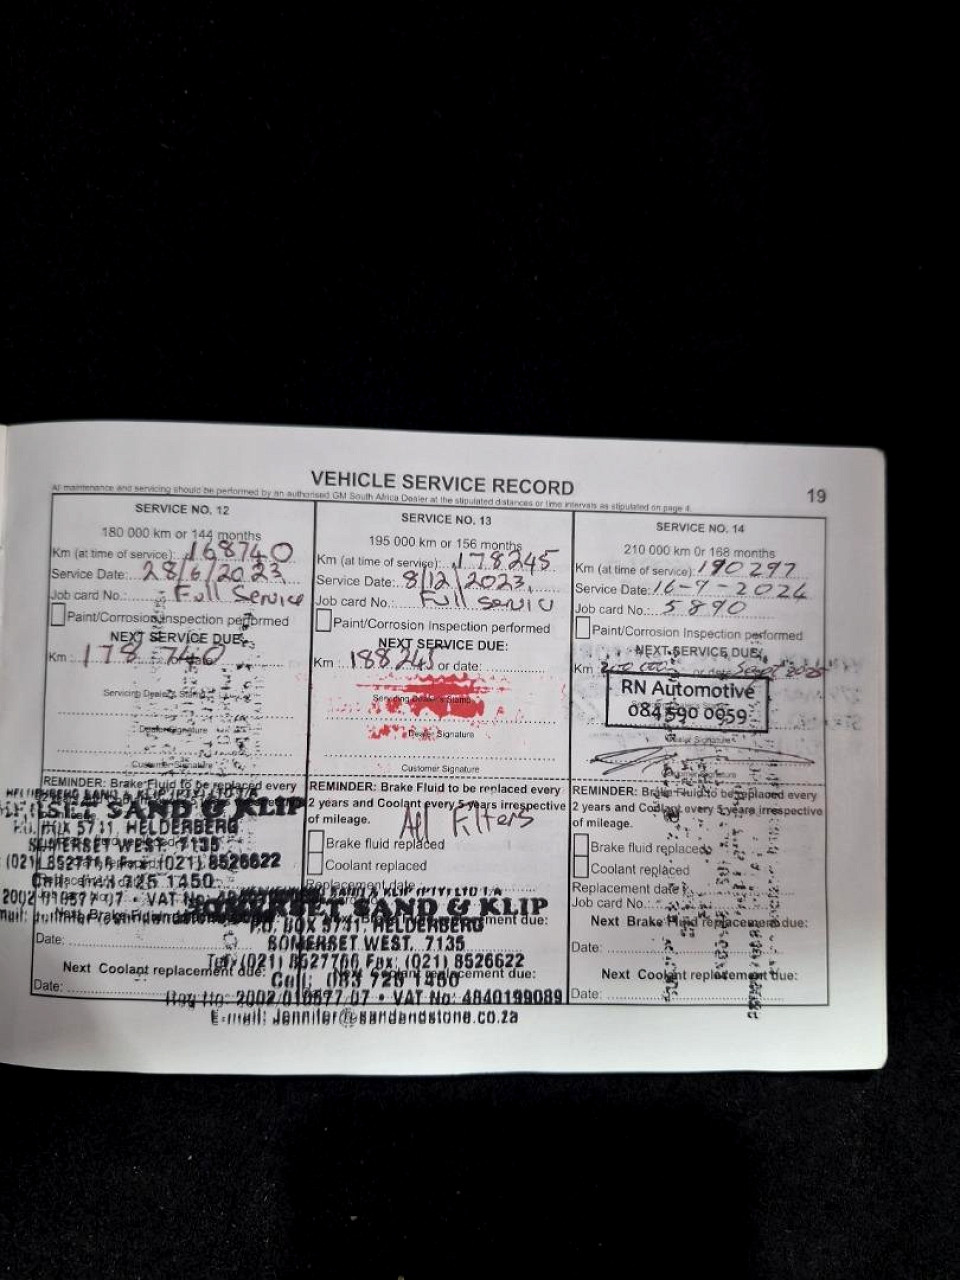 VEHICLE SERVICE RECORD
19
All maintenance and servicing should be performed by an authorised GM South Africa Dealer at the stipulated distances or time intervals as stipulated on page 4.
SERVICE NO. 12
180 000 km or 144 months
Km (at time of service): 168740
Service Date: 28/6/2023
Job card No.: Full Service
Paint/Corrosion Inspection performed
NEXT SERVICE DUE:
Km 178 740 or date
Servicing Dealer's Stamp
Dealer Signature
Customer Signature
REMINDER: Brake Fluid to be replaced every
SAND & KLIP
P.O. BOX 5731, HELDERBERG
SOMERSET WEST 7135
(021) 8527766 Fax: (021) 8526622
Date:
Next Coolant replacement due:
Date:
SERVICE NO. 13
195 000 km or 156 months
Km (at time of service): 178245
Service Date: 8/12/2023
Job card No.: Full servic
Paint/Corrosion Inspection performed
NEXT SERVICE DUE:
Km 188245 or date:
Servicing Dealer's Stamp
Dealer Signature
Customer Signature
REMINDER: Brake Fluid to be replaced every
2 years and Coolant every 5 years irrespective
of mileage. All Filters
Brake fluid replaced
Coolant replaced
Replacement date
SOMERSET SAND & KLIP
P.O. BOX 5731, HELDERBERG
SOMERSET WEST. 7135
Tel: (021) 8527766 Fax: (021) 8526622
Cell: 083 726 1450
Reg No: 2002/010577/07 • VAT No: 4840199089
E-mail: Jennifer@sandandstone.co.za
SERVICE NO. 14
210 000 km or 168 months
Km (at time of service): 190297
Service Date: 16-9-2024
Job card No.: 5890
Paint/Corrosion Inspection performed
NEXT SERVICE DUE:
Km 200 000 or date Sept 2025
RN Automotive
084 590 0959
REMINDER: Brake Fluid to be replaced every
2 years and Coolant every 5 years irrespective
of mileage.
Brake fluid replaced
Coolant replaced
Replacement date
Job card No.
Next Brake Fluid replacement due:
Date:
Next Coolant replacement due:
Date: